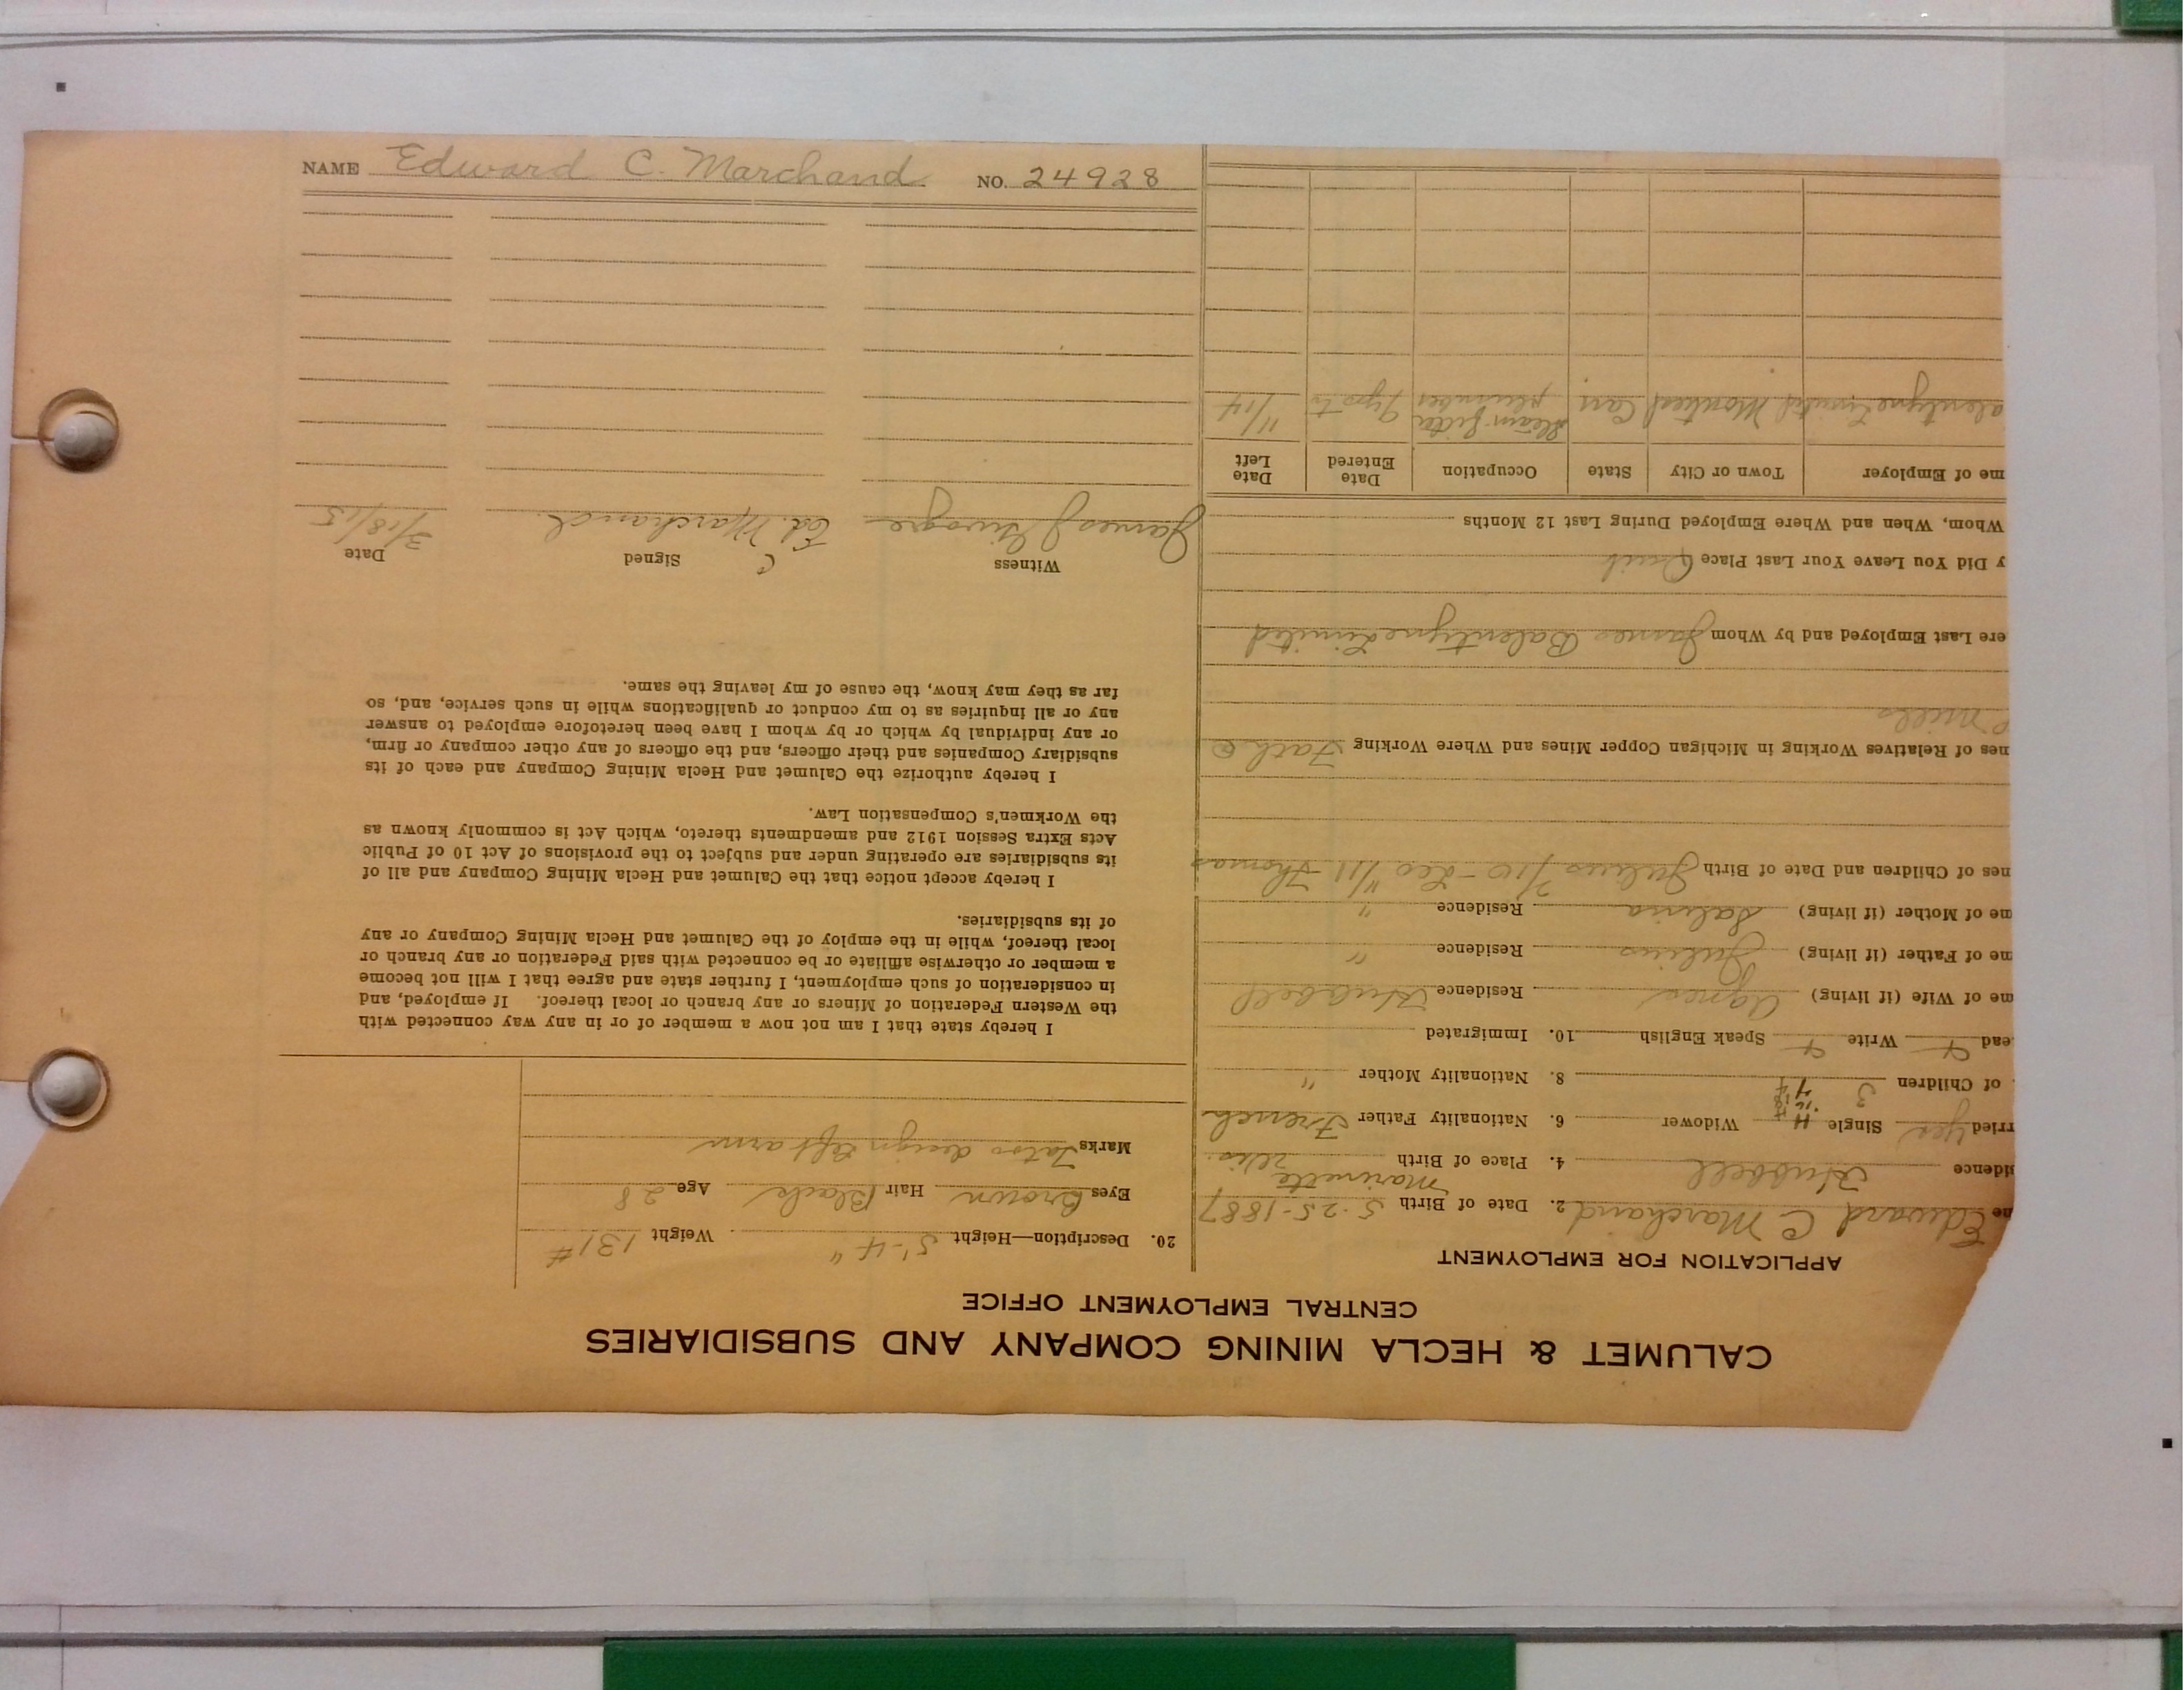 NAME Edward C. Marchand NO. 24928
CALUMET & HECLA MINING COMPANY AND SUBSIDIARIES
CENTRAL EMPLOYMENT OFFICE
APPLICATION FOR EMPLOYMENT
me Edward C Marchand 2. Date of Birth 5-25-1887
sidence Hubbell 4. Place of Birth Marinette Wis.
rried Yes Single Widower 6. Nationality Father French
of Children 3 8. Nationality Mother "
ead Write Speak English 10. Immigrated
me of Wife (if living) Agnes Residence Hubbell
me of Father (if living) Julius Residence "
me of Mother (if living) Salina Residence "
nes of Children and Date of Birth Julius 2/10 - Leo 11/11 Thomas
nes of Relatives Working in Michigan Copper Mines and Where Working Fath @
Mills
ere Last Employed and by Whom James Balentyne Limited
y Did You Leave Your Last Place Quit
Whom, When and Where Employed During Last 12 Months
me of Employer Town or City State Occupation Date Entered Date Left
alentyne Limited Montreal Can Steam fitter 11/14
plumber
20. Description—Height 5'-4" Weight 131#
Eyes Brown Hair Black Age 28
Marks Tatoo design left arm
I hereby state that I am not now a member of or in any way connected with
the Western Federation of Miners or any branch or local thereof. If employed, and
in consideration of such employment, I further state and agree that I will not become
a member or otherwise affiliate or be connected with said Federation or any branch or
local thereof, while in the employ of the Calumet and Hecla Mining Company or any
of its subsidiaries.
I hereby accept notice that the Calumet and Hecla Mining Company and all of
its subsidiaries are operating under and subject to the provisions of Act 10 of Public
Acts Extra Session 1912 and amendments thereto, which Act is commonly known as
the Workmen's Compensation Law.
I hereby authorize the Calumet and Hecla Mining Company and each of its
subsidiary Companies and their officers, and the officers of any other company or firm,
or any individual by which or by whom I have been heretofore employed to answer
any or all inquiries as to my conduct or qualifications while in such service, and, so
far as they may know, the cause of my leaving the same.
Witness Signed Date
James J Ed. C Marchand 3/18/15